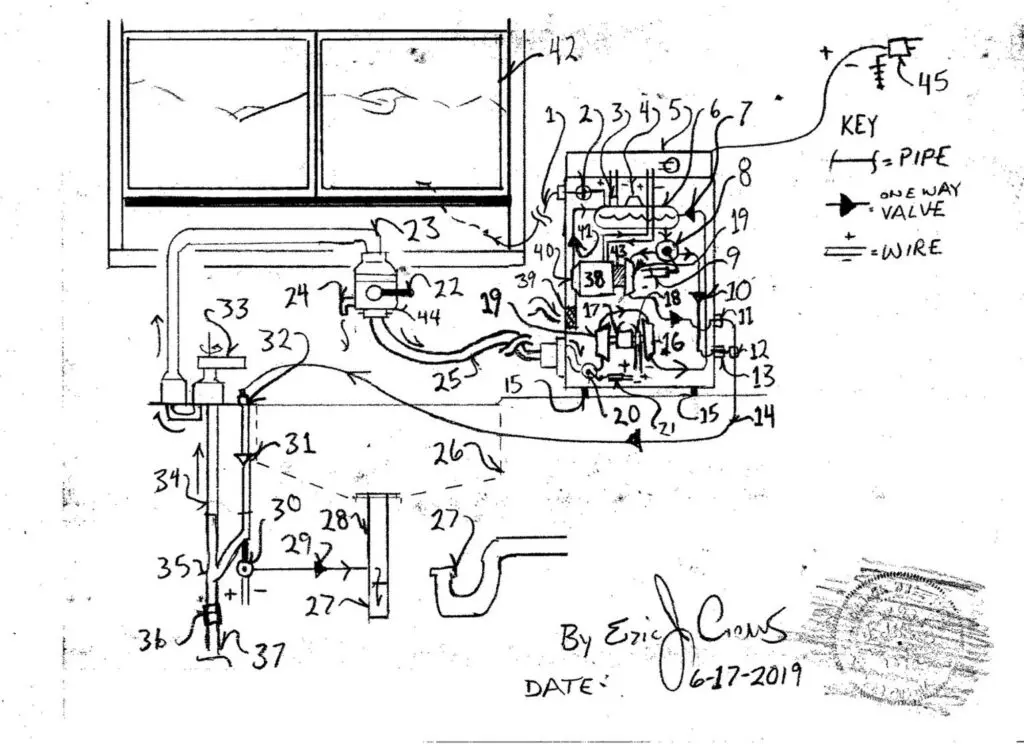 42
1 2 3 4 5 6 7
8
19
45
+
-
KEY
= PIPE
= ONE WAY
VALVE
+
= WIRE
-
23
24
22
44
25
33
32
+ - + -
41
40
43
38
39
9
10
11
19
17
18
16
12
13
14
15
20
21
15
+ -
31
26
34
30
28
29
27
27
35
36
37
+ -
By Eric J
DATE: 6-17-2019